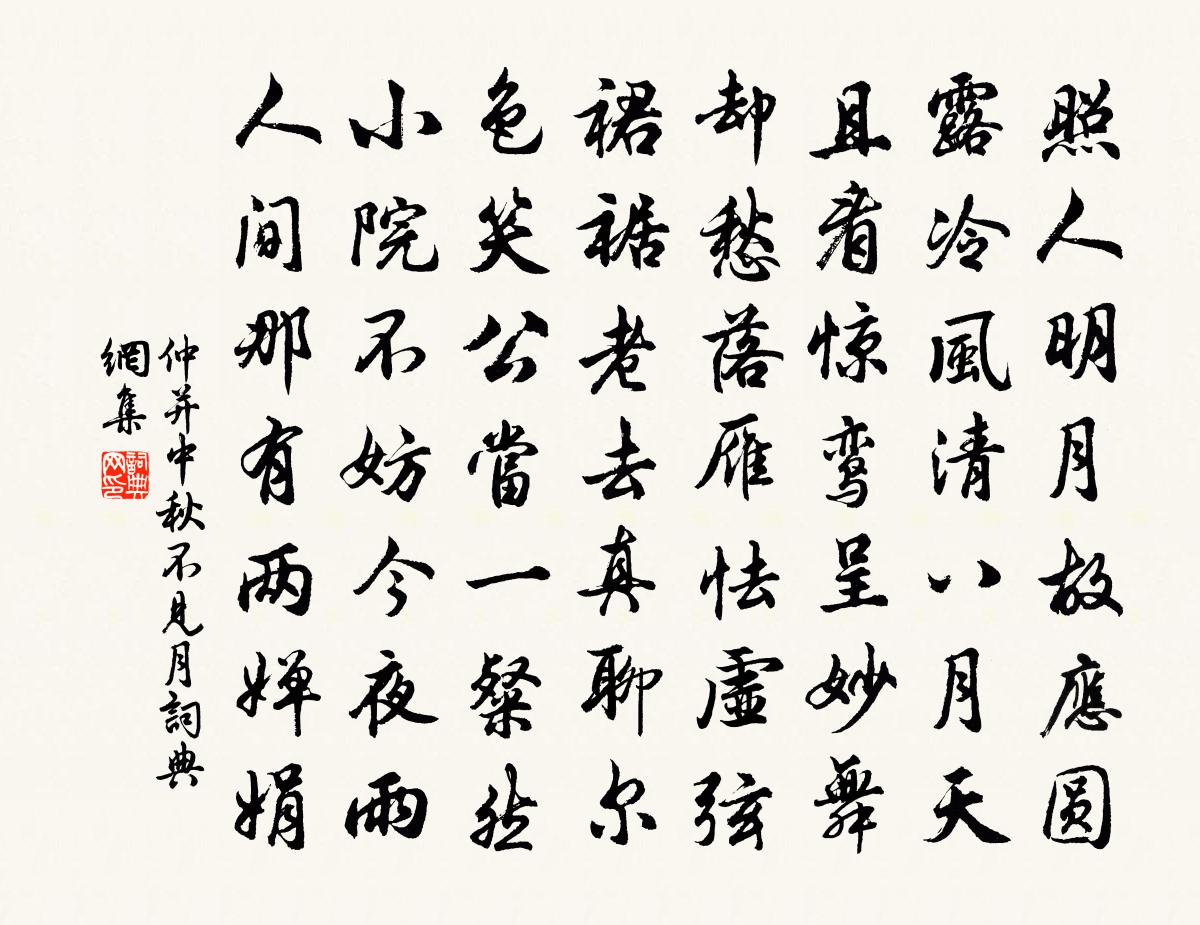 照人明月故應圆
露冷風清八月天
且看惊鸾呈妙舞
却愁落雁怯虚弦
裙裾老去真聊尔
色笑公當一粲然
小院不妨今夜雨
人间那有两婵娟
仲并中秋不見月詞典
網集
詞典网印